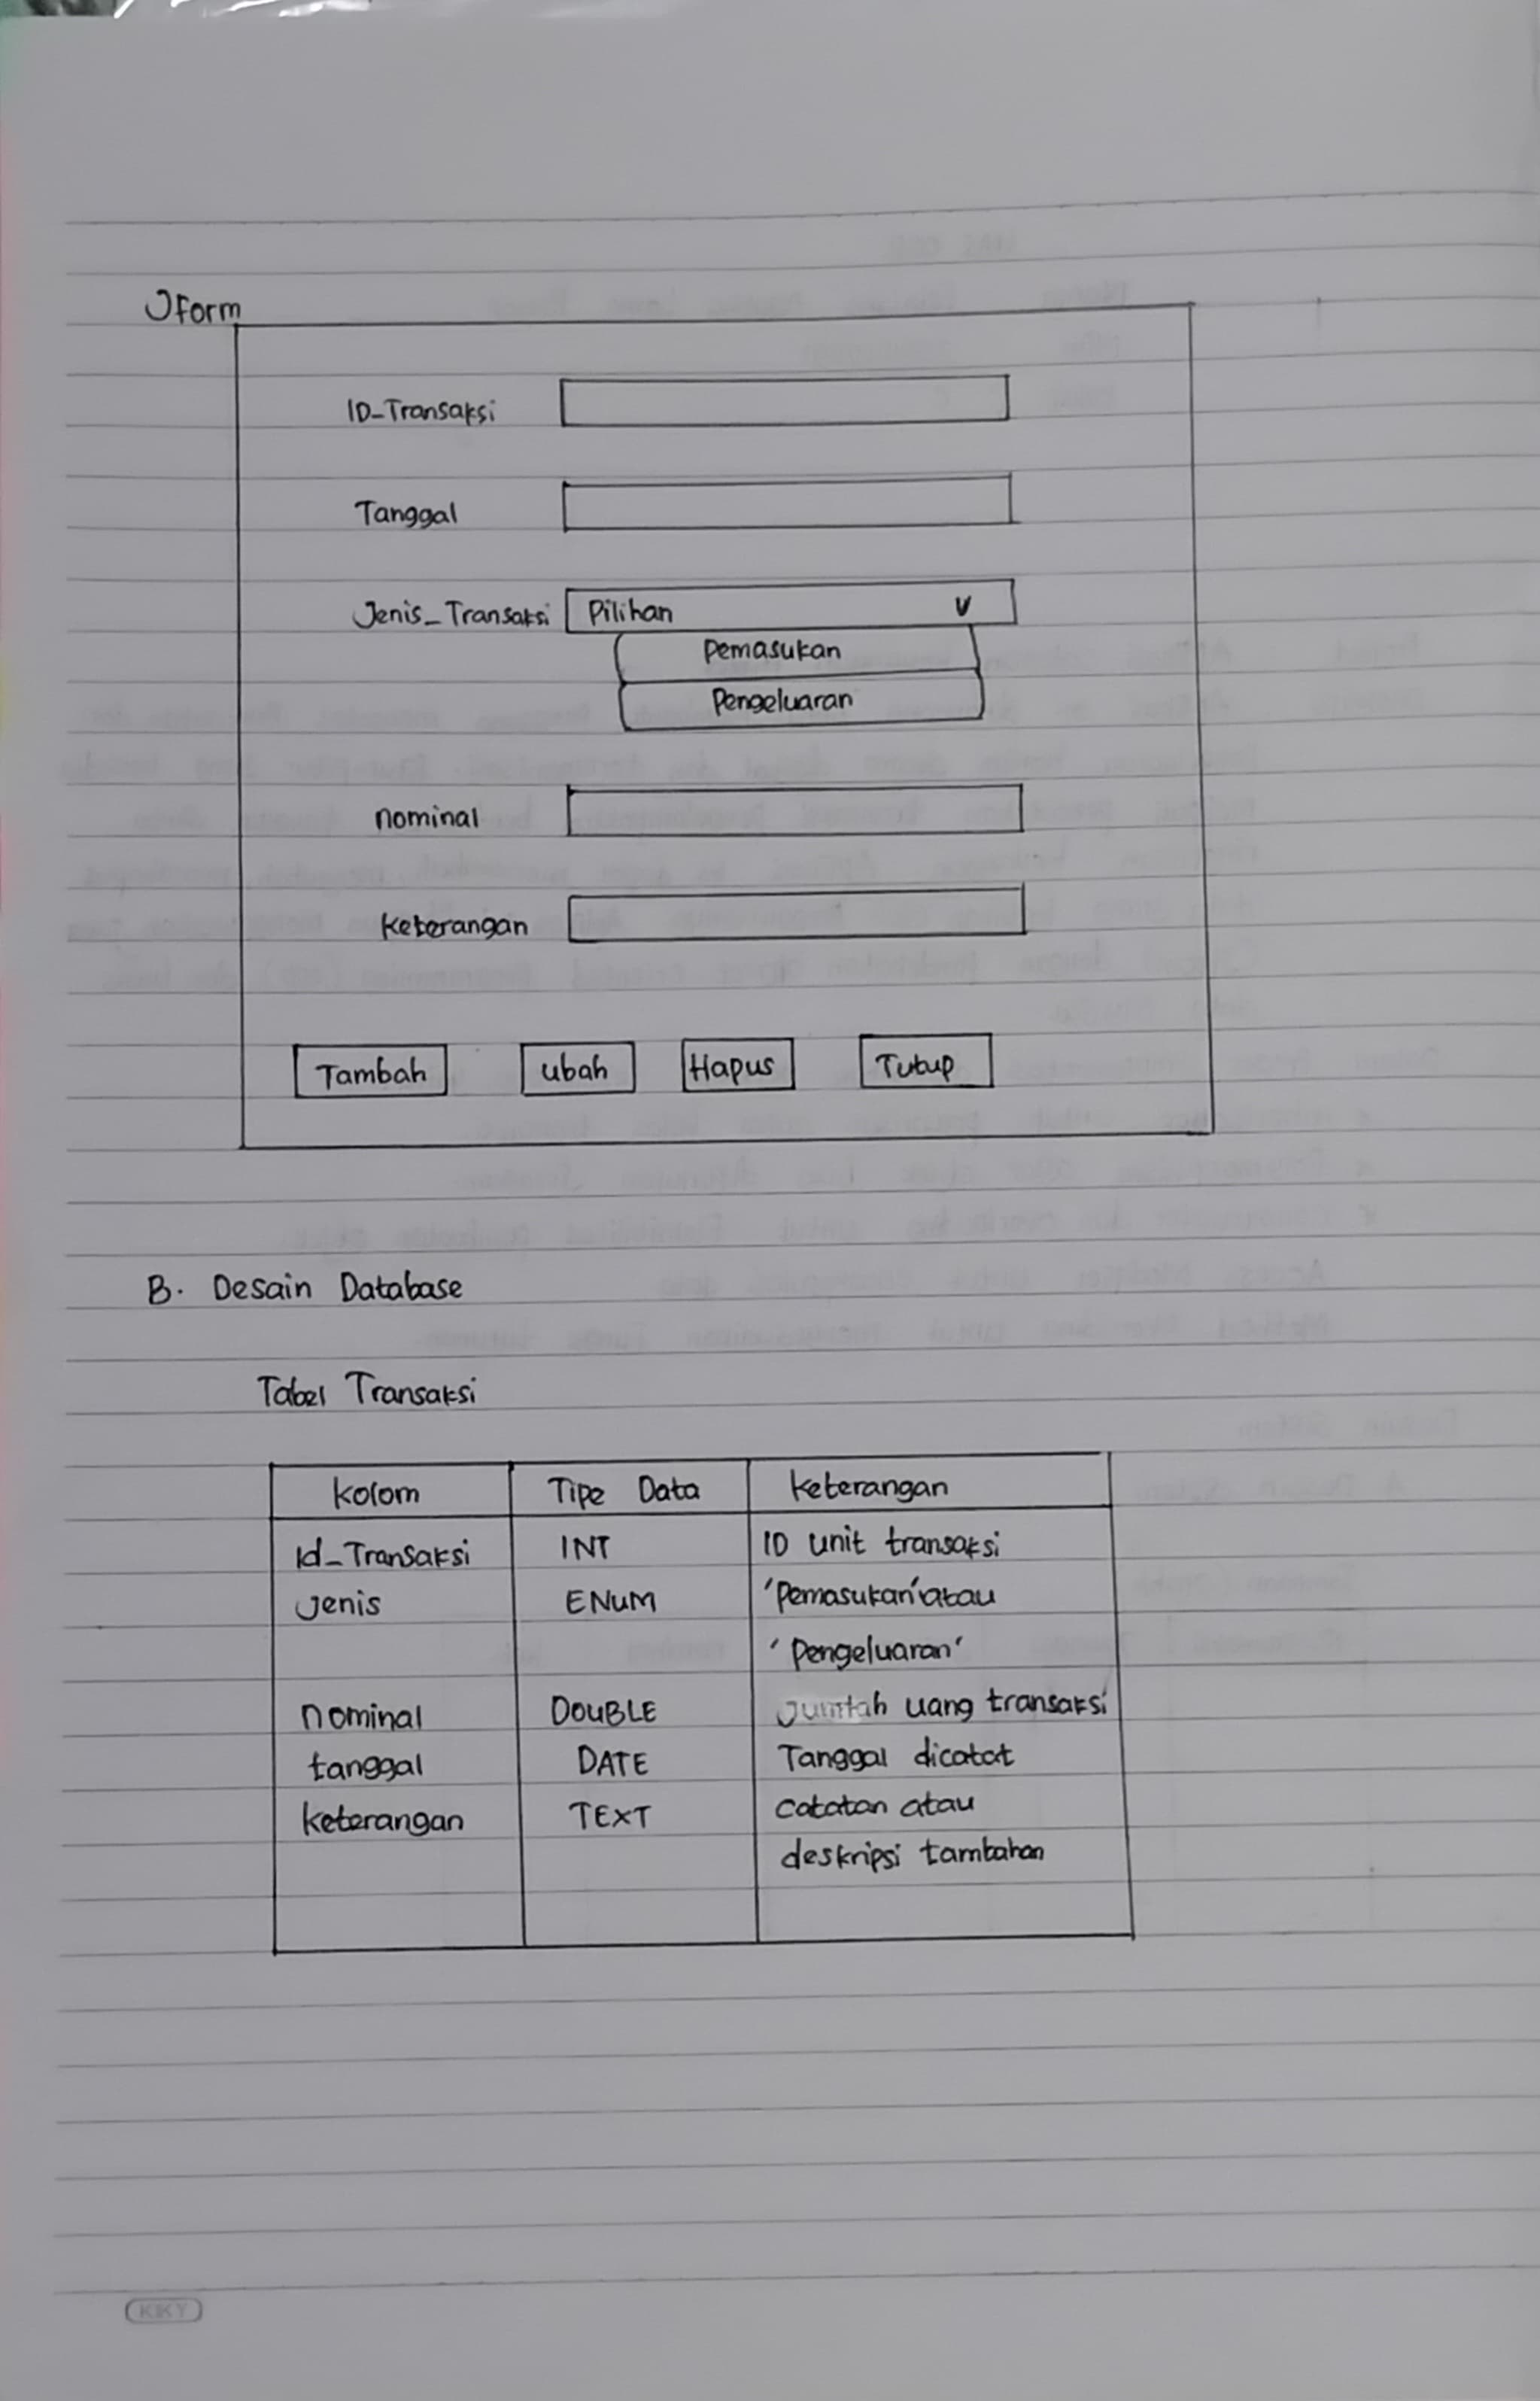 JForm
ID_Transaksi
Tanggal
Jenis_Transaksi Pilihan v
Pemasukan
Pengeluaran
nominal
keterangan
Tambah ubah Hapus Tutup
B. Desain Database
Tabel Transaksi
Kolom Tipe Data keterangan
Id_Transaksi INT ID unit transaksi
Jenis ENUM 'Pemasukan' atau
'Pengeluaran'
nominal DOUBLE Jumlah uang transaksi
tanggal DATE Tanggal dicatat
keterangan TEXT catatan atau
deskripsi tambahan
KIKY